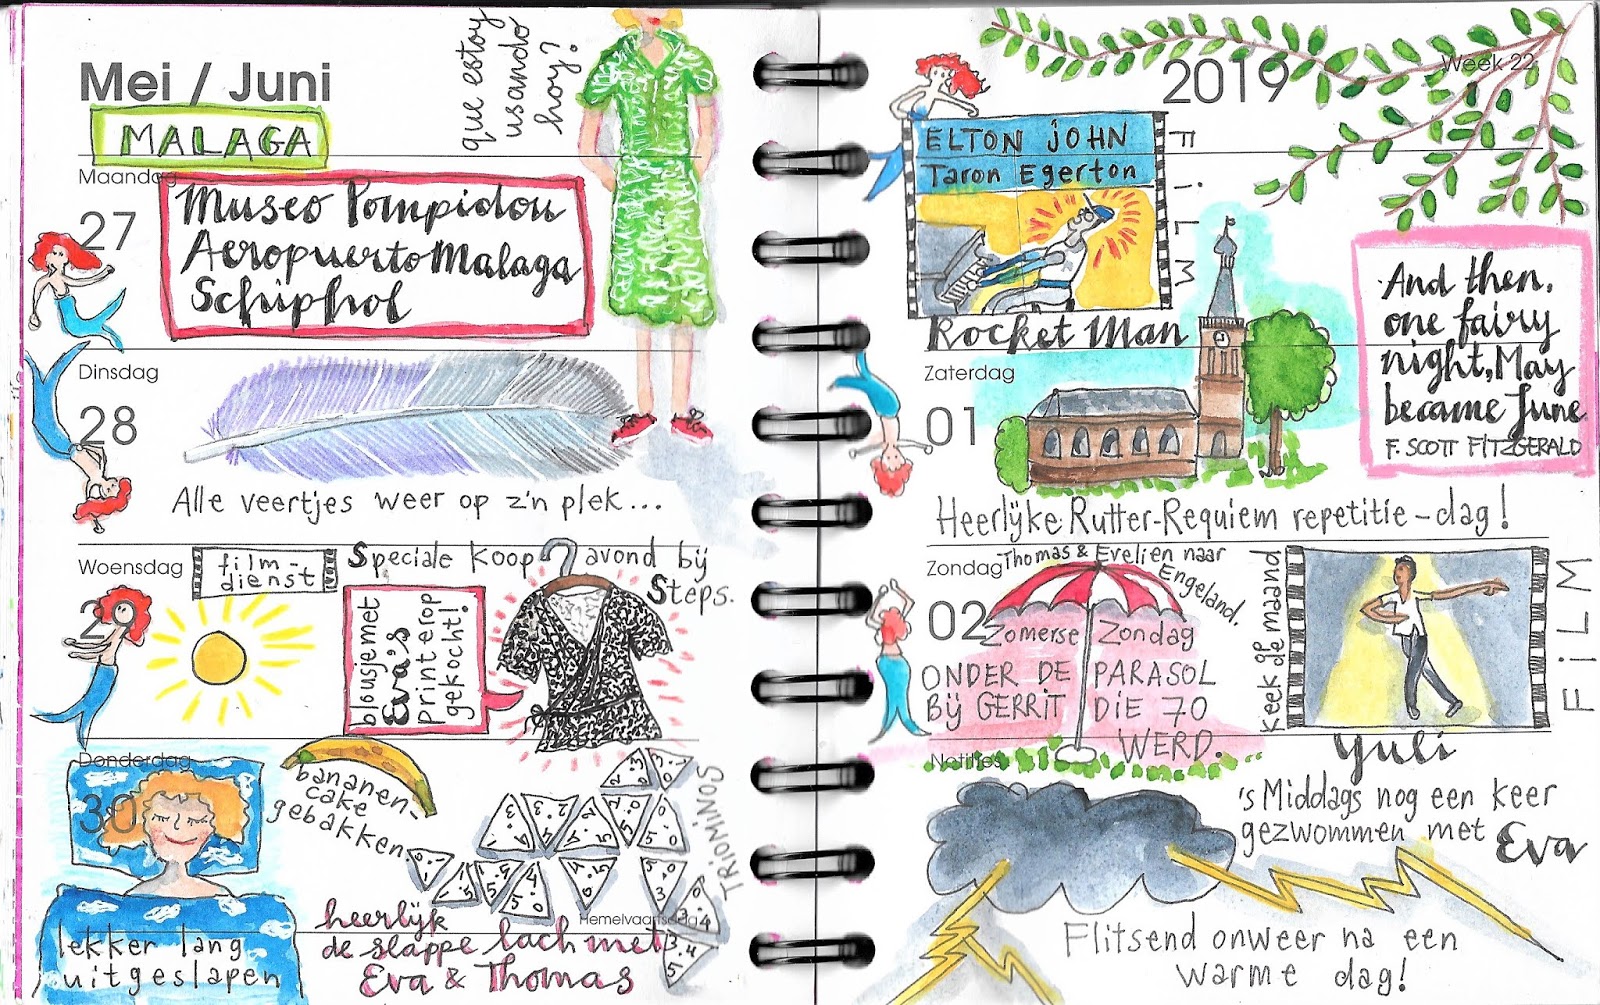 Mei / Juni
MALAGA
que estoy
usando
hoy?
Maandag
27
Museo Pompidou
Aeropuerto Malaga
Schiphol
Dinsdag
28
Alle veertjes weer op z'n plek...
Woensdag
29
film-
dienst
Speciale Koop avond bij
Steps.
blousje met
Eva's
printerop
gekocht!
Donderdag
30
bananen-
cake
gebakken.
TRIOMINOS
Hemelvaartsdag
lekker lang
uitgeslapen
heerlijk
de slappe lach met
Eva & Thomas
2019
Week 22
ELTON JOHN
Taron Egerton
FiLM
Rocket Man
And then,
one fairy
night, May
became June
F. SCOTT FITZGERALD
Zaterdag
01
Heerlijke Rutter-Requiem repetitie-dag!
Zondag
02
Thomas & Evelien naar
Engeland.
Zomerse Zondag
ONDER DE PARASOL
Bij GERRIT DiE 70
WERD.
Keek op
de maand
FiLM
Yuli
Notities
's Middags nog een keer
gezwommen met
Eva
Flitsend onweer na een
warme dag!